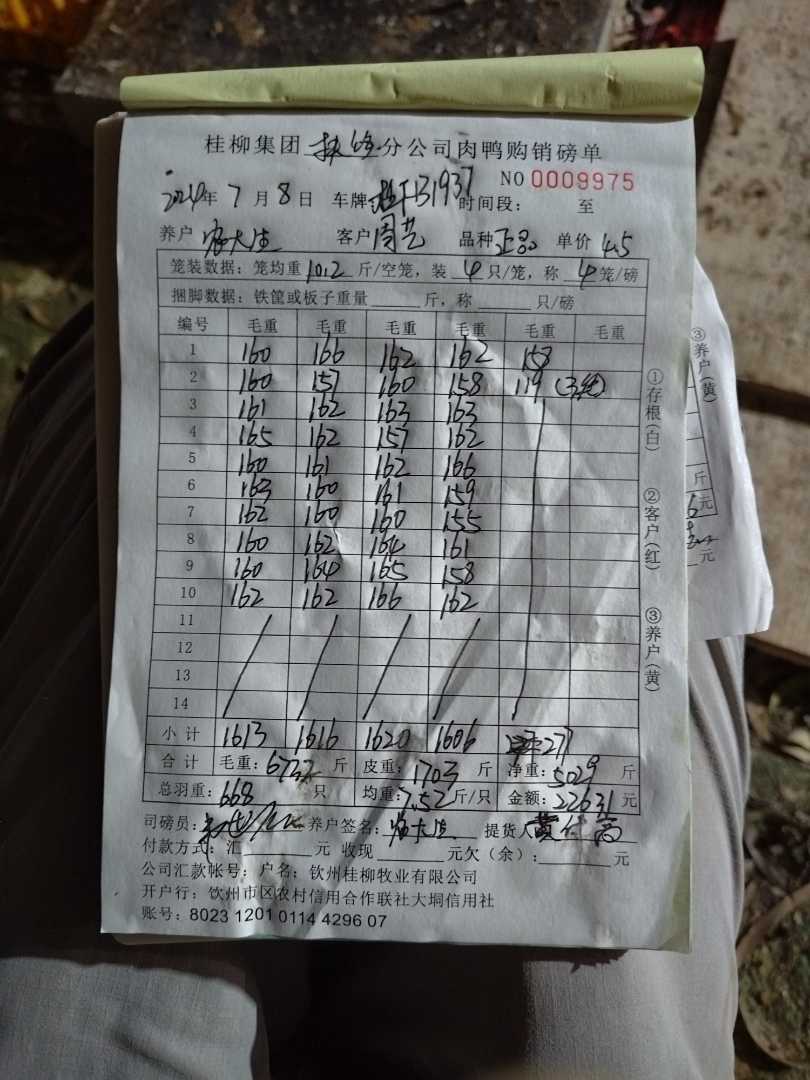 桂柳集团 分公司肉鸭购销磅单
NO 0009975
2024年 7 月 8 日 车牌: 桂 B1937 时间段: 至
养户 大生 客户 周艺 品种 正品 单价 4.5
笼装数据: 笼均重 10.2 斤/空笼, 装 4 只/笼, 称 4 笼/磅
捆脚数据: 铁筐或板子重量 斤, 称 只/磅
编号 毛重 毛重 毛重 毛重 毛重 毛重
1 160 166 162 162 158
2 160 157 160 158 119 (3笼)
3 161 162 163 163
4 165 162 157 162
5 160 161 162 166
6 163 160 161 159
7 162 160 160 155
8 160 162 164 161
9 160 164 165 158
10 162 162 166 162
11
12
13
14
小计 1613 1616 1620 1606 277
合计 毛重: 6732 斤 皮重: 1703 斤 净重: 5029 斤
总羽重: 668 只 均重: 7.52 斤/只 金额: 22631 元
司磅员: 养户签名: 大生 提货人 黄 高
付款方式: 汇 元 收现 元欠(余): 元
公司汇款帐号: 户名: 钦州桂柳牧业有限公司
开户行: 钦州市区农村信用合作联社大垌信用社
账号: 8023 1201 0114 4296 07
①存根(白)
②客户(红)
③养户(黄)
③养户(黄)
斤
6元
元